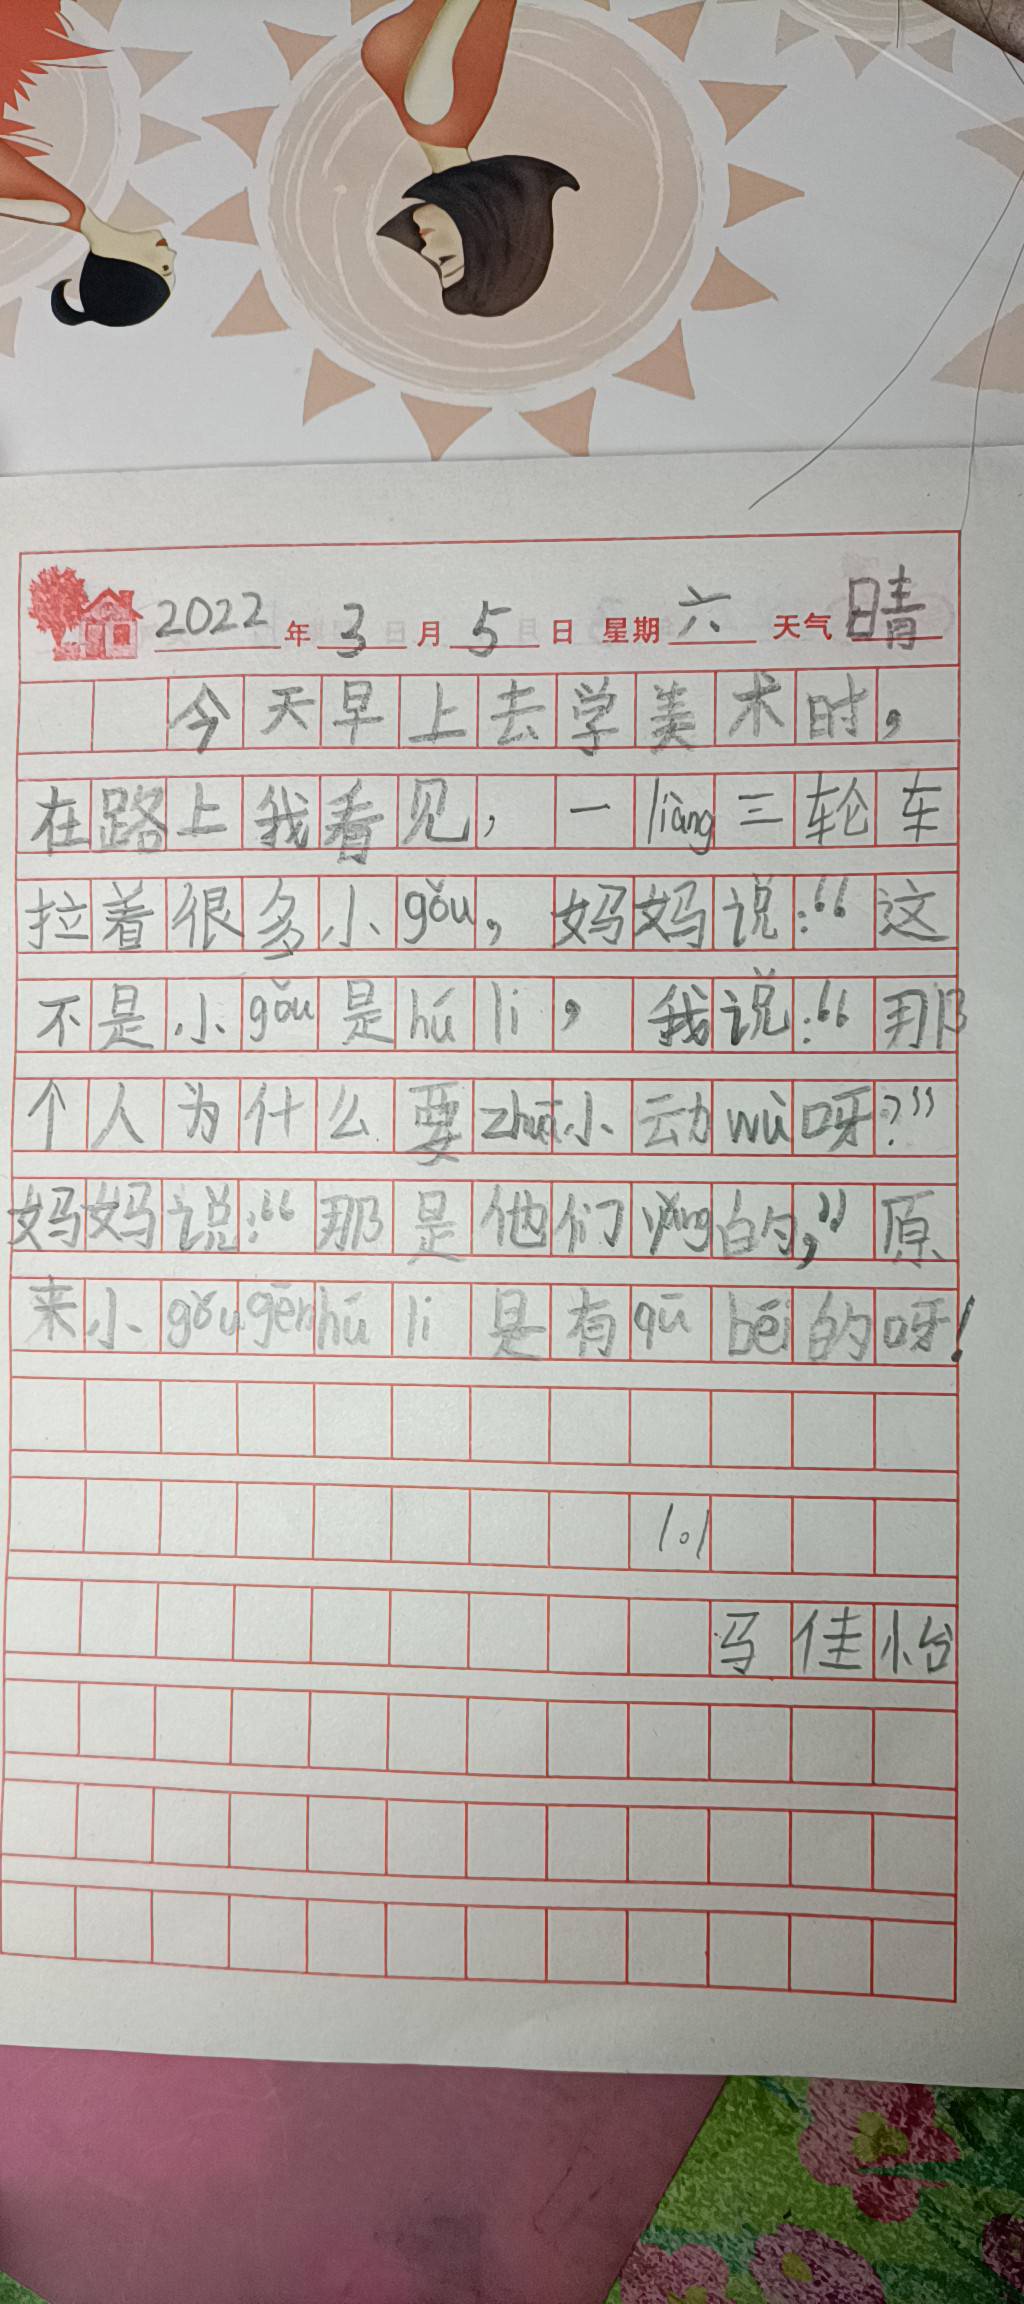 2022年3月5日 星期六 天气晴
今天早上去学美术时,
在路上我看见,一liàng三轮车
拉着很多小gǒu,妈妈说:“这
不是小gǒu是hú li,我说:“那
个人为什么要zhuā小动wù呀?”
妈妈说:“那是他们yǎng的,”原
来小gǒu gēn hú li 是有qū béi的呀!
1.1
马佳怡